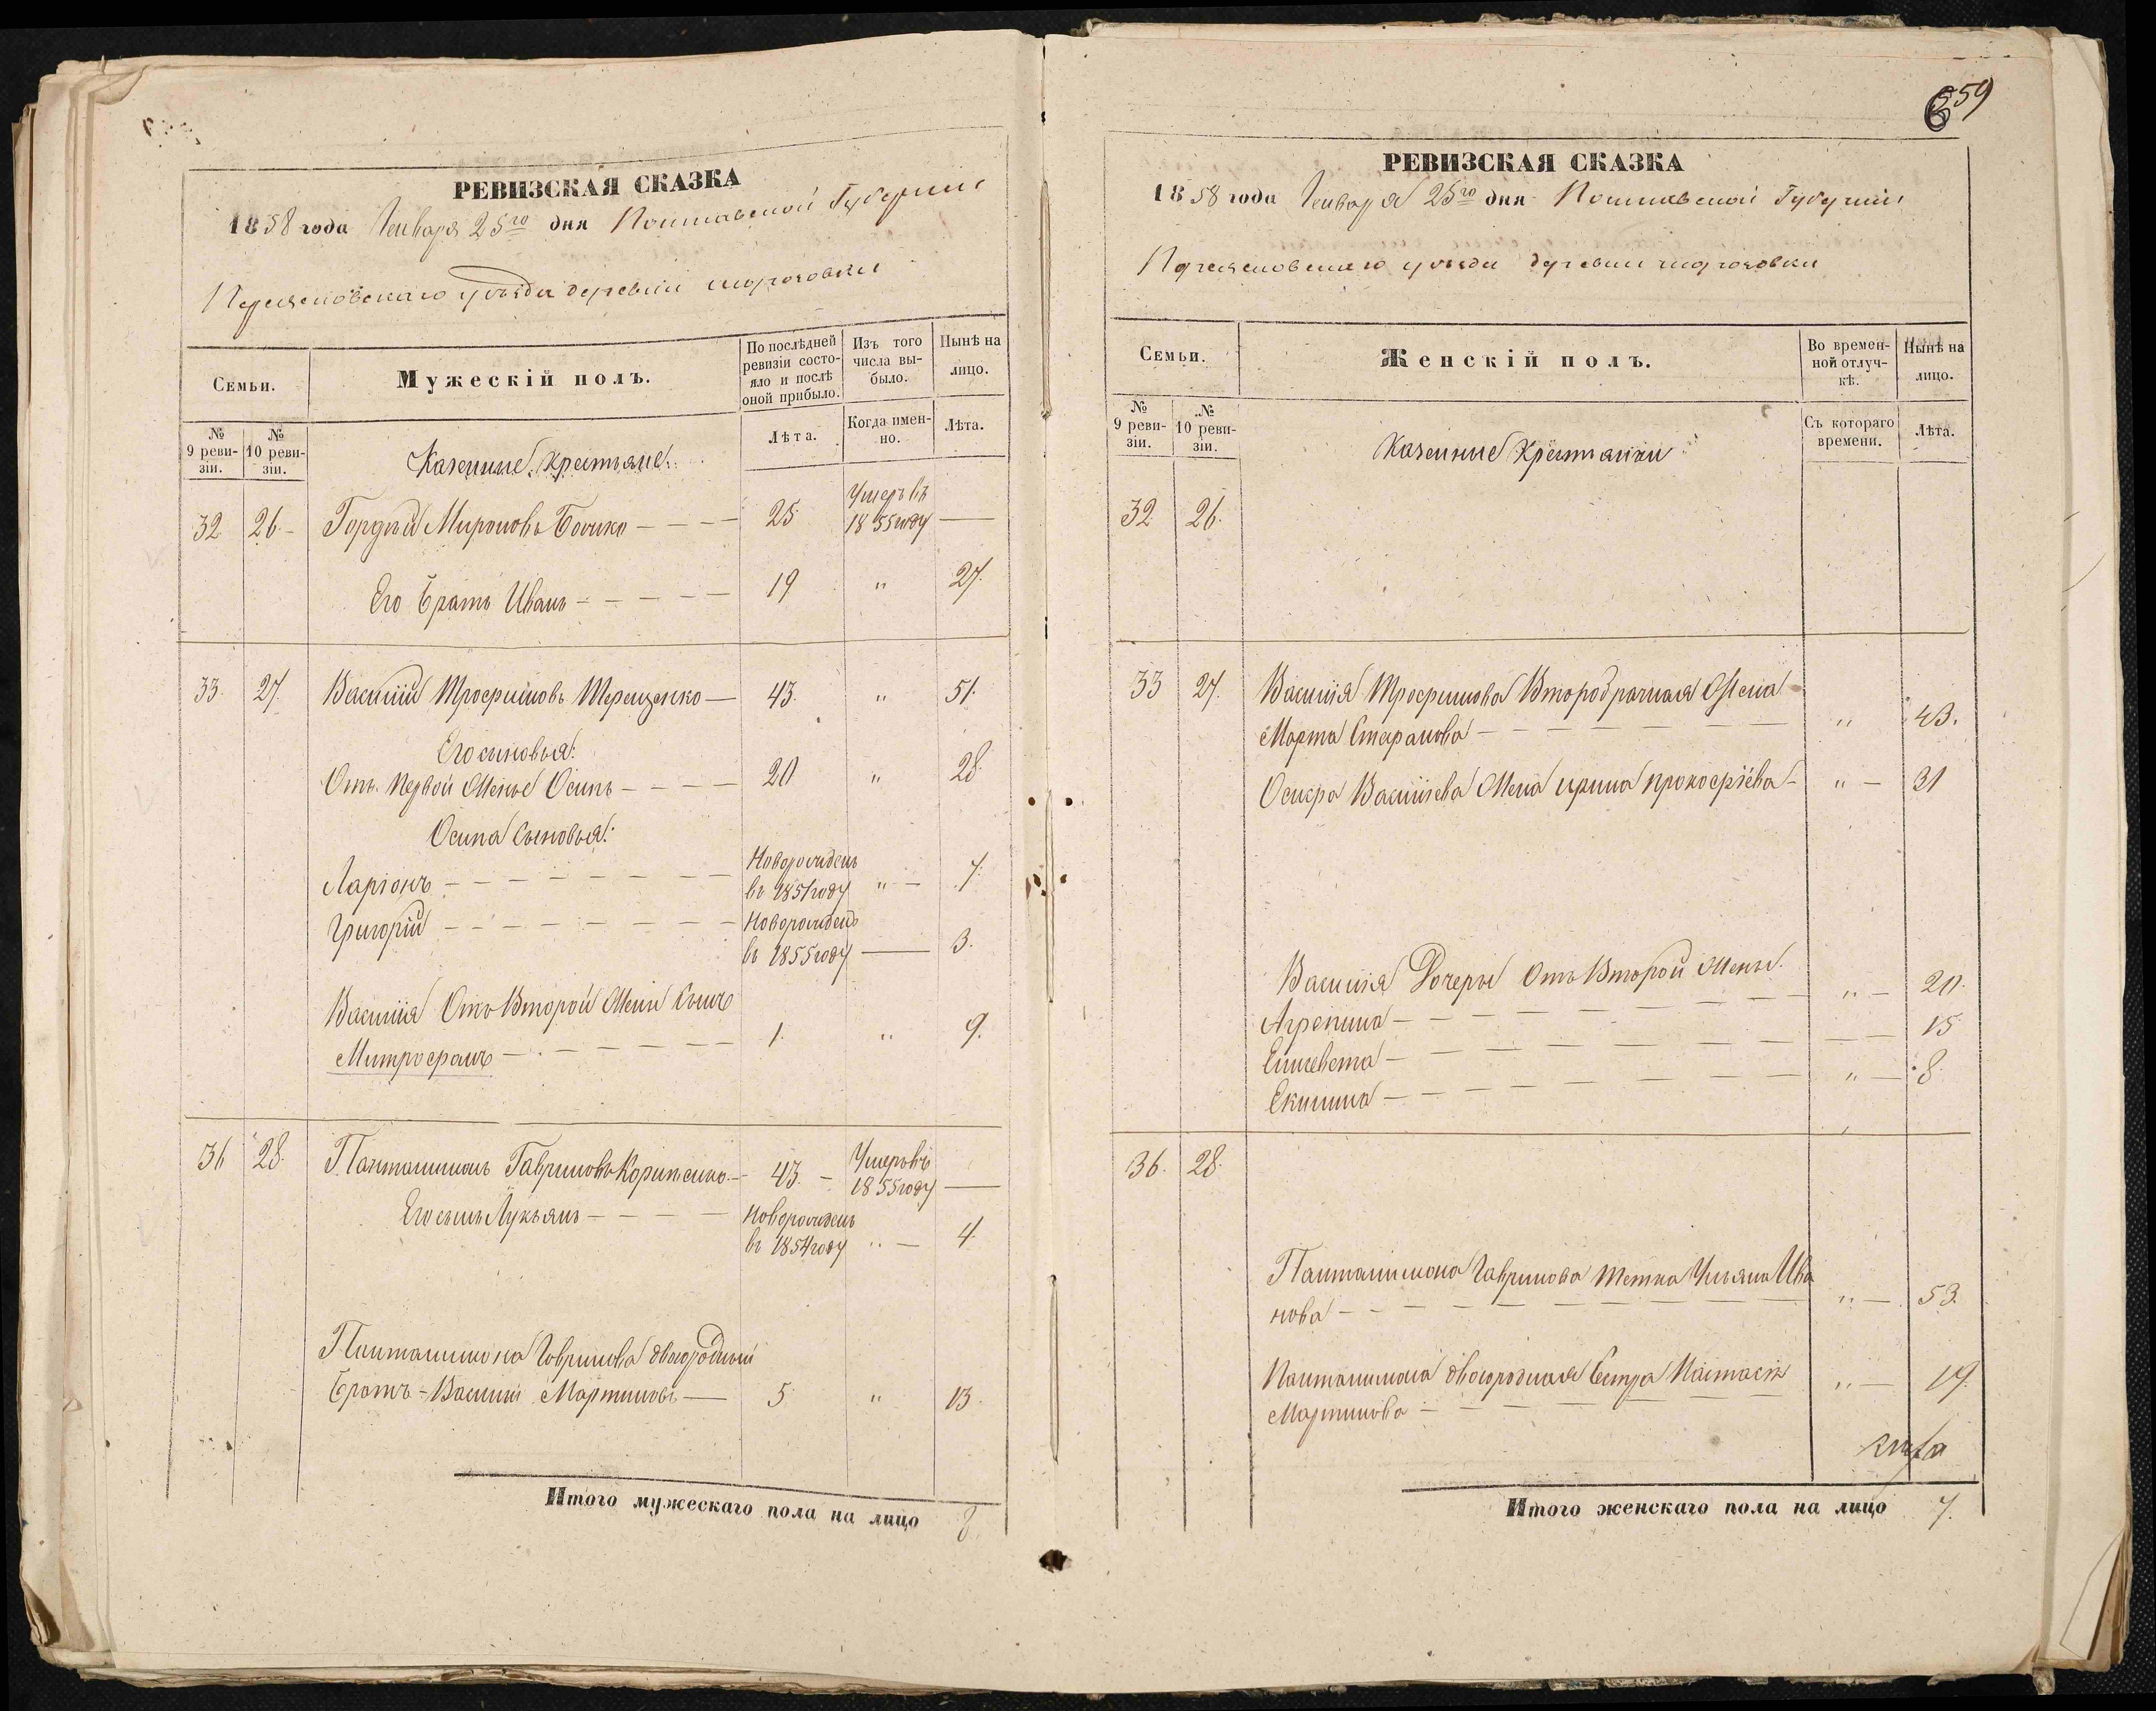 559
РЕВИЗСКАЯ СКАЗКА
1858 года Января 25го дня Полтавской Губернии
Переяславскаго уѣзда деревни
Семьи.
Мужескій полъ.
По послѣдней ревизіи состояло и послѣ оной прибыло.
Изъ того числа выбыло.
Нынѣ на лицо.
№ 9 ревизіи.
№ 10 ревизіи.
Лѣта.
Когда именно.
Лѣта.
Казенные Крестьяне:
32 26 Гордѣй Мироновъ Бочко 25 Умеръ въ 1855 году
Его Братъ Иванъ 19 " 27.
33. 27. Василій Трофимовъ Терещенко 43. " 51.
Его сыновья:
Отъ Первой Жены Осипъ 20 " 28.
Осипа Сыновья:
Ларіонъ Новорожденъ въ 1851 году " 7.
Григорій Новорожденъ въ 1855 году 3.
Василія Отъ Второй Жены Сынъ
Митрофанъ 1. " 9.
36 28. Пантилимонъ Гавриловъ 43. Умеръ въ 1855 году
Его сынъ Лукьянъ Новорожденъ въ 1854 году " 4.
Пантилимона Гаврилова двоюродный
Братъ - Василий Мартиновъ 5 " 13.
Итого мужескаго пола на лицо 8.
РЕВИЗСКАЯ СКАЗКА
1858 года Января 25го дня Полтавской Губерніи
Переяславскаго уѣзда деревни
Семьи.
Женскій полъ.
Во временной отлучкѣ.
Нынѣ на лицо.
№ 9 ревизіи.
№ 10 ревизіи.
Съ котораго времени.
Лѣта.
Казенные Крестьянки
32 26.
33 27. Василія Трофимова Второбрачная Жена
Марта Степанова " 43.
Осипа Василіева Жена Ирина Прокофіева " 31
Василія Дочеры Отъ Второй Жены.
Агрепина " 20.
Елисавета 15
Екилина " 8.
36. 28.
Пантилимона Гаврилова Тетка Ульяна Ива
нова " 53.
Пантилимона двоюродная Сестра Настасія
Мартинова " 19.
Итого женскаго пола на лицо 7.